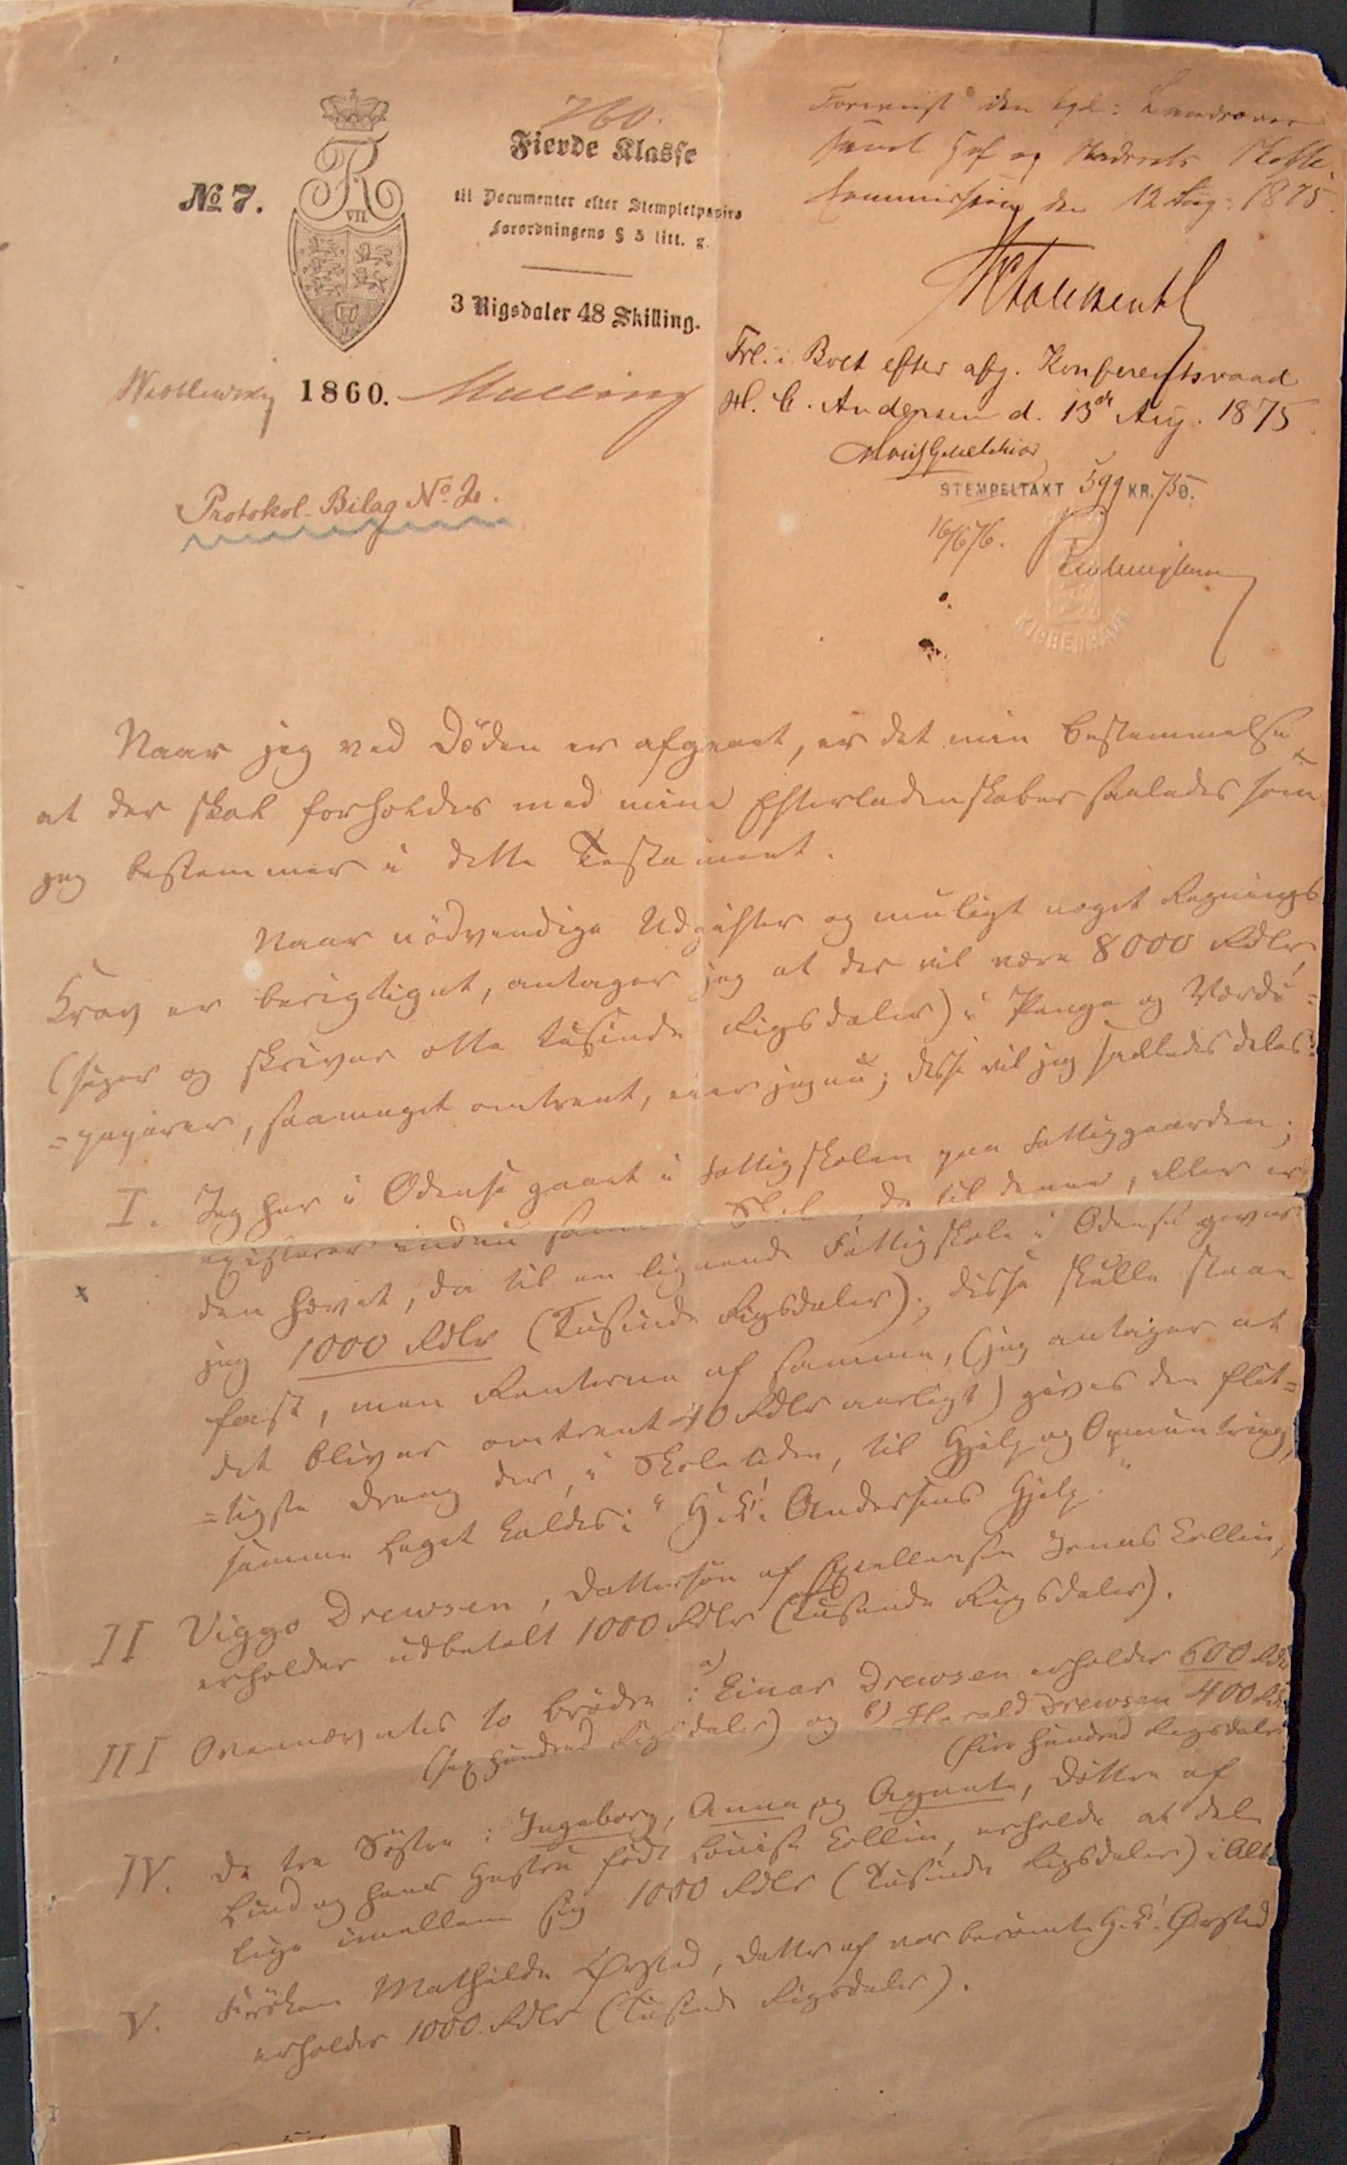 760.
Fierde Klasse
No 7.
VII.
til Documenter efter Stempletpapirs
Forordningens § 5 litt. g.
3 Rigsdaler 48 Skilling.
1860.
Protokol-Bilag No. 2.
Foreviist i den kgl: Landsover
samt Hof og Stadsrets Skifte
Commission den 12 Aug: 1875.
Frl. i Boet efter afg. Konferentsraad
H. C. Andersen d. 13de Aug. 1875
Moritz G. Melchior
STEMPELTAXT 599 KR. 50.
16/6 76.
KIØBENHAVN
Naar jeg ved Döden er afgaaet, er det min Bestemmelse
at der skal forholdes med mine Efterladenskaber saaledes som
jeg bestemmer i dette Testament.
Naar nödvendige Udgifter og muligt noget Regnings
Krav er berigtiget, antager jeg at der vil være 8000 Rdlr,
(siger og skriver otte tusinde Rigsdaler) i Penge og Værdi=
=papirer, saameget omtrent, eier jeg nu; disse vil jeg saaledes deles:
I. Jeg har i Odense gaaet i Fattigskolen paa Fattiggaarden;
existerer endnu samme Skole, da til denne, eller er
den hævet, da til en lignende Fattigskole i Odense giver
jeg 1000 Rdlr (Tusinde Rigsdaler); disse skulle staae
fast, men Renterne af samme, (jeg antager at
det bliver omtrent 40 Rdlr aarligt) gives den flit=
=tigste Dreng der, i Skoletiden, til Hjelp og Opmuntring,
samme Legat kaldes: "H. C. Andersens Hjelp."
II Viggo Drewsen, Dattersön af Excellensen Jonas Collin,
erholder udbetalt 1000 Rdlr (Tusinde Rigsdaler).
III Ovennævntes to Brödre: a) Einar Drewsen erholder 600 Rdlr
(sex hundred Rigsdaler) og b) Harald Drewsen 400 Rdlr
(fire hundred Rigsdaler
IV. De tre Söstre: Ingeborg, Anna og Agnete, Döttre af
Lind og hans Hustru född Louise Collin, erholde at dele
lige imellem sig 1000 Rdlr (Tusinde Rigsdaler) i Alt
V. Fröken Mathilde Ørsted, Datter af vor berömte H. C. Ørsted
erholder 1000 Rdlr (Tusinde Rigsdaler).